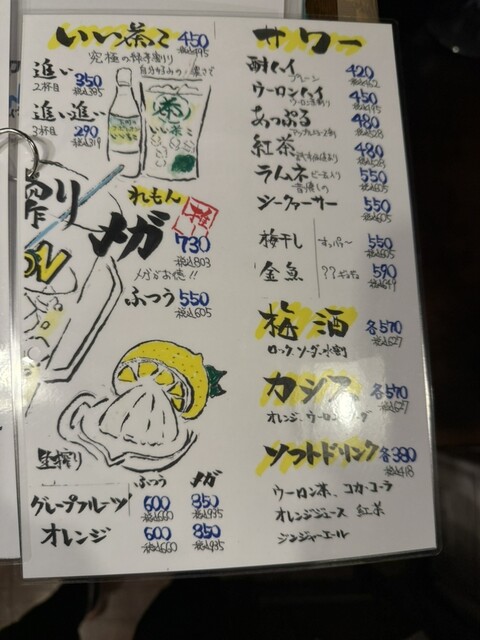 いい茶こ 450
税込495
究極の緑茶割り
自分好みの濃さで
追い 350
2杯目 税込385
追い追い 290
3杯目 税込319
茶
いい茶こ
搾り
れもん
メガ 730
税込803
メガがお得!!
ふつう 550
税込605
生搾り
ふつう メガ
グレープフルーツ 600 850
税込660 税込935
オレンジ 600 850
税込660 税込935
サワー
酎ハイ 420
プレーン 税込462
ウーロンハイ 450
税込495
あっぷる 480
税込528
紅茶 480
税込528
ラムネ 550
昔懐しの 税込605
シークァーサー 550
税込605
梅干し 550
税込605
金魚 590
税込649
梅酒 各570
税込627
ロック、ソーダ、水割
カシス 各570
税込627
オレンジ、ウーロン、ソーダ
ソフトドリンク 各380
税込418
ウーロン茶、コカ・コーラ
オレンジジュース 紅茶
ジンジャーエール